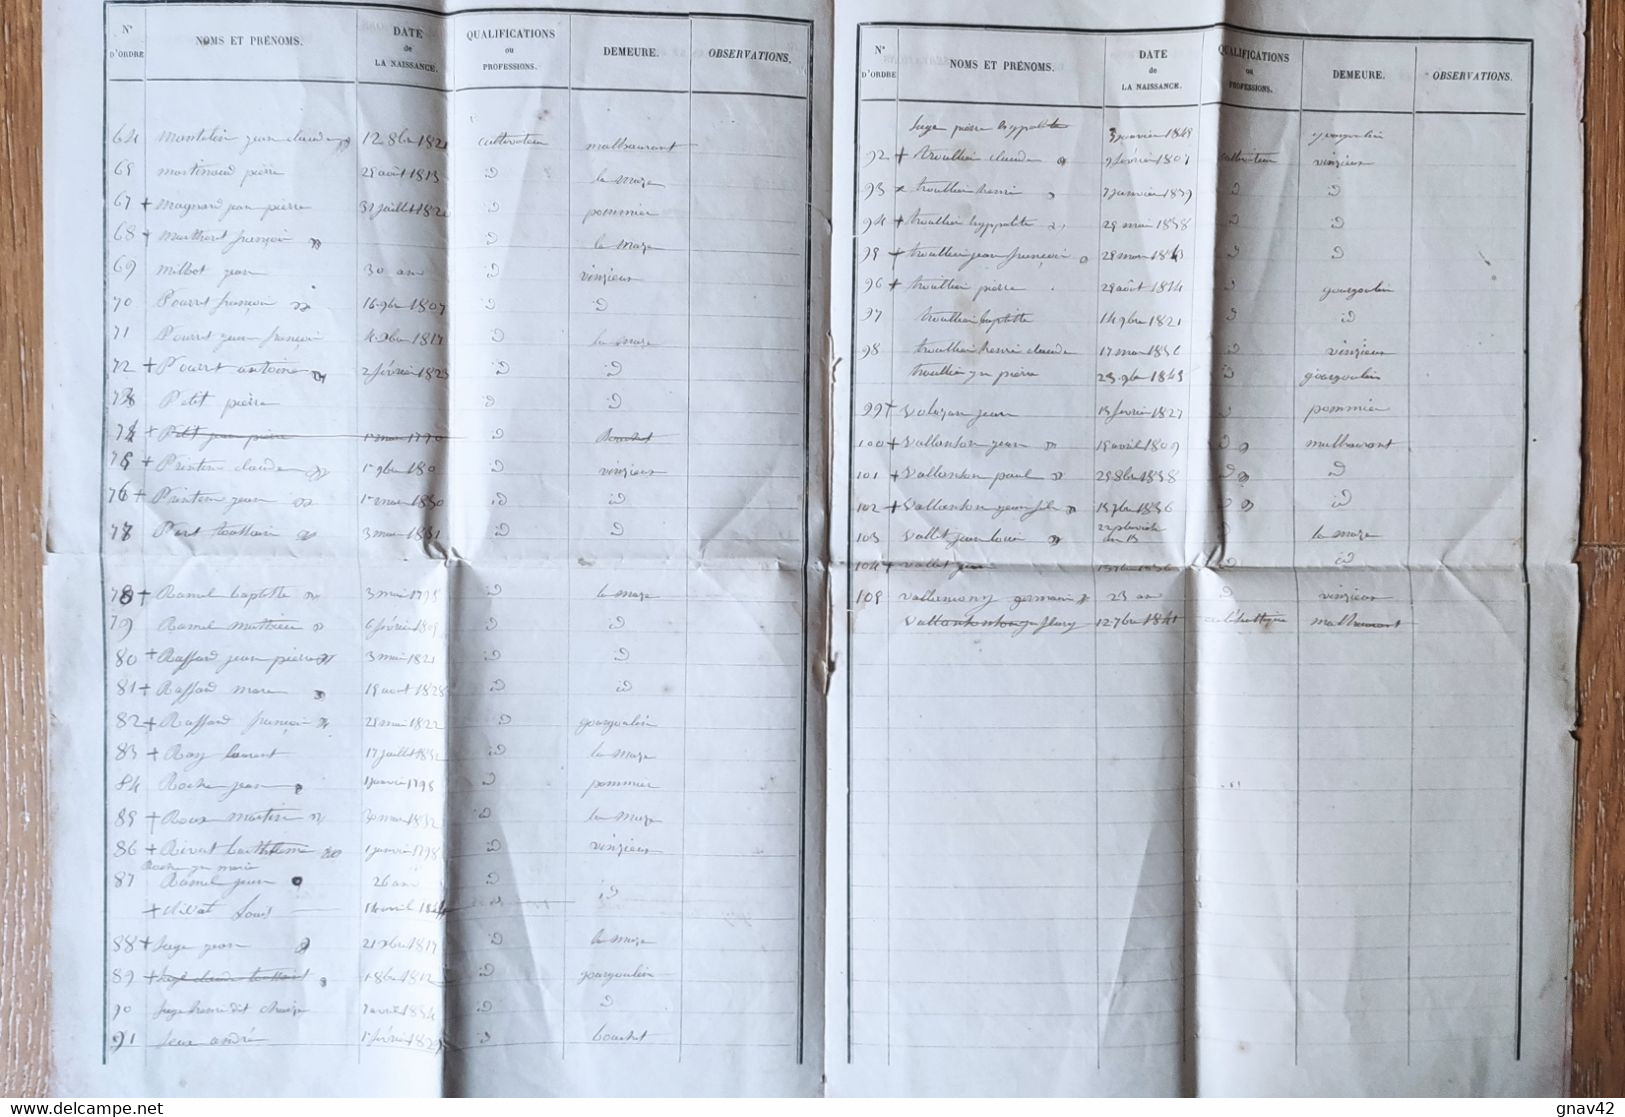 N° D'ORDRE NOMS ET PRÉNOMS. DATE de LA NAISSANCE. QUALIFICATIONS ou PROFESSIONS. DEMEURE. OBSERVATIONS.
64 jean claude 12 8bre 1821 cultivateur malbaurant
65 pierre 29 août 1813 id la maze
67 + jean pierre 31 juillet 1820 id pommier
68 + françois id la maze
69 Milbot jean 30 ans id vinzieux
70 Pourret françois 16 9bre 1807 id id
71 Pourret jean françois 4 9bre 1817 id la maze
72 + Pourret antoine 2 février 1823 id id
73 Petit pierre id id
74 + Petit jean pierre 1r mai 1790 id Bouchet
75 + Printem claude 1r 9bre 180 id vinzieux
76 + Printem jean 1r mai 1830 id id
77 toussain 3 mai 1831 id id
78 + Ramel baptiste 3 mai 1798 id la maze
79 Ramel mathieu 6 février 1809 id id
80 + Raffard jean pierre 3 mai 1821 id id
81 + Raffard marc 19 août 1828 id id
82 + Raffard françois 28 mai 1822 id gourgoulin
83 + Ray laurent 17 juillet 1832 id la maze
84 Roche jean 1 janvier 1798 id pommier
85 + Roux martin 30 mars 1832 id la maze
86 + Rivat barthélemi 1 janvier 1798 id vinzieux
Roche jn marie
87 Ramel jean 26 ans id id
+ Rivat Louis 14 avril
88 + Sage jean 21 9bre 1817 id la maze
89 + Sage claude toussant 1 8bre 1812 id gourgoulin
90 Sage henri dit 7 avril 1834 id id
91 Seux andré 1r février 1829 id bouchet
N° D'ORDRE NOMS ET PRÉNOMS. DATE de LA NAISSANCE. QUALIFICATIONS ou PROFESSIONS. DEMEURE. OBSERVATIONS.
Sage pierre hyppolite 3 janvier 1848 gourgoulin
92 + trouillier claude 9 février 1801 cultivateur vinzieux
93 + trouillier henri 7 janvier 1839 id id
94 + trouillier hyppolite 29 mai 1838 id id
95 + trouillier jean françois 28 mars 1843 id id
96 + trouillier pierre 29 août 1814 id gourgoulin
97 trouillier baptiste 14 9bre 1821 id id
98 trouillier henri claude 17 mars 1836 id vinzieux
trouillier jn pierre 23 9bre 1843 id gourgoulin
99 + Valayan jean 15 février 1827 id pommier
100 + Vallanson jean 19 avril 1809 id malbaurant
101 + Vallanson paul 29 8bre 1838 id id
102 + Vallanson jean fils 15 7bre 1836 id id
103 Vallet jean louis 22 pluviose an 13 la maze
104 + Vallet jean id id
105 germain 23 ans id vinzieux
fleury 12 7bre 1841 malbaurant
gnav42